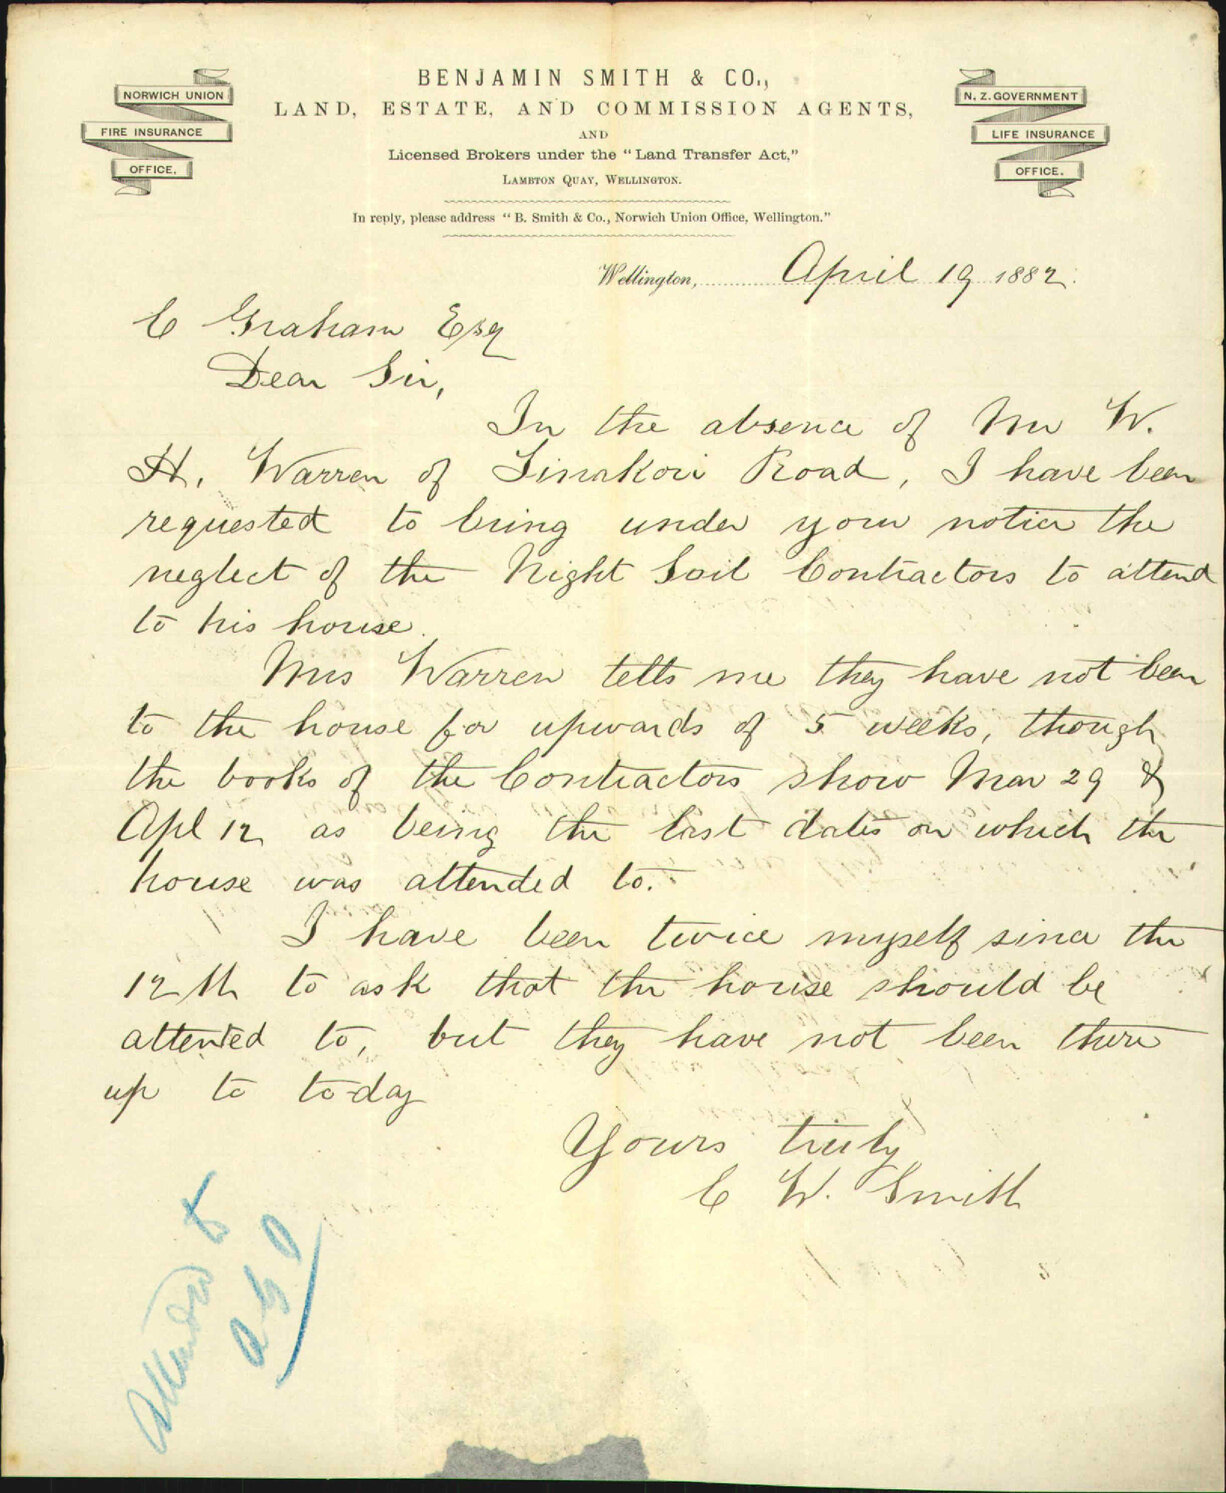 BENJAMIN SMITH & CO.,
LAND, ESTATE, AND COMMISSION AGENTS,
AND
Licensed Brokers under the "Land Transfer Act,"
LAMBTON QUAY, WELLINGTON.
In reply, please address "B. Smith & Co., Norwich Union Office, Wellington."
NORWICH UNION
FIRE INSURANCE
OFFICE.
N. Z. GOVERNMENT
LIFE INSURANCE
OFFICE.
Wellington, April 19 1882.
C Graham Esq
Dear Sir,
In the absence of Mr W.
H. Warren of Tinakori Road, I have been
requested to bring under your notice the
neglect of the Night Soil Contractors to attend
to his house.
Mrs Warren tells me they have not been
to the house for upwards of 5 weeks, though
the books of the Contractors show Mar 29 &
Apl 12 as being the last dates on which the
house was attended to.
I have been twice myself since the
12th to ask that the house should be
attended to, but they have not been there
up to to-day
Yours truly
C W. Smith
Attended to